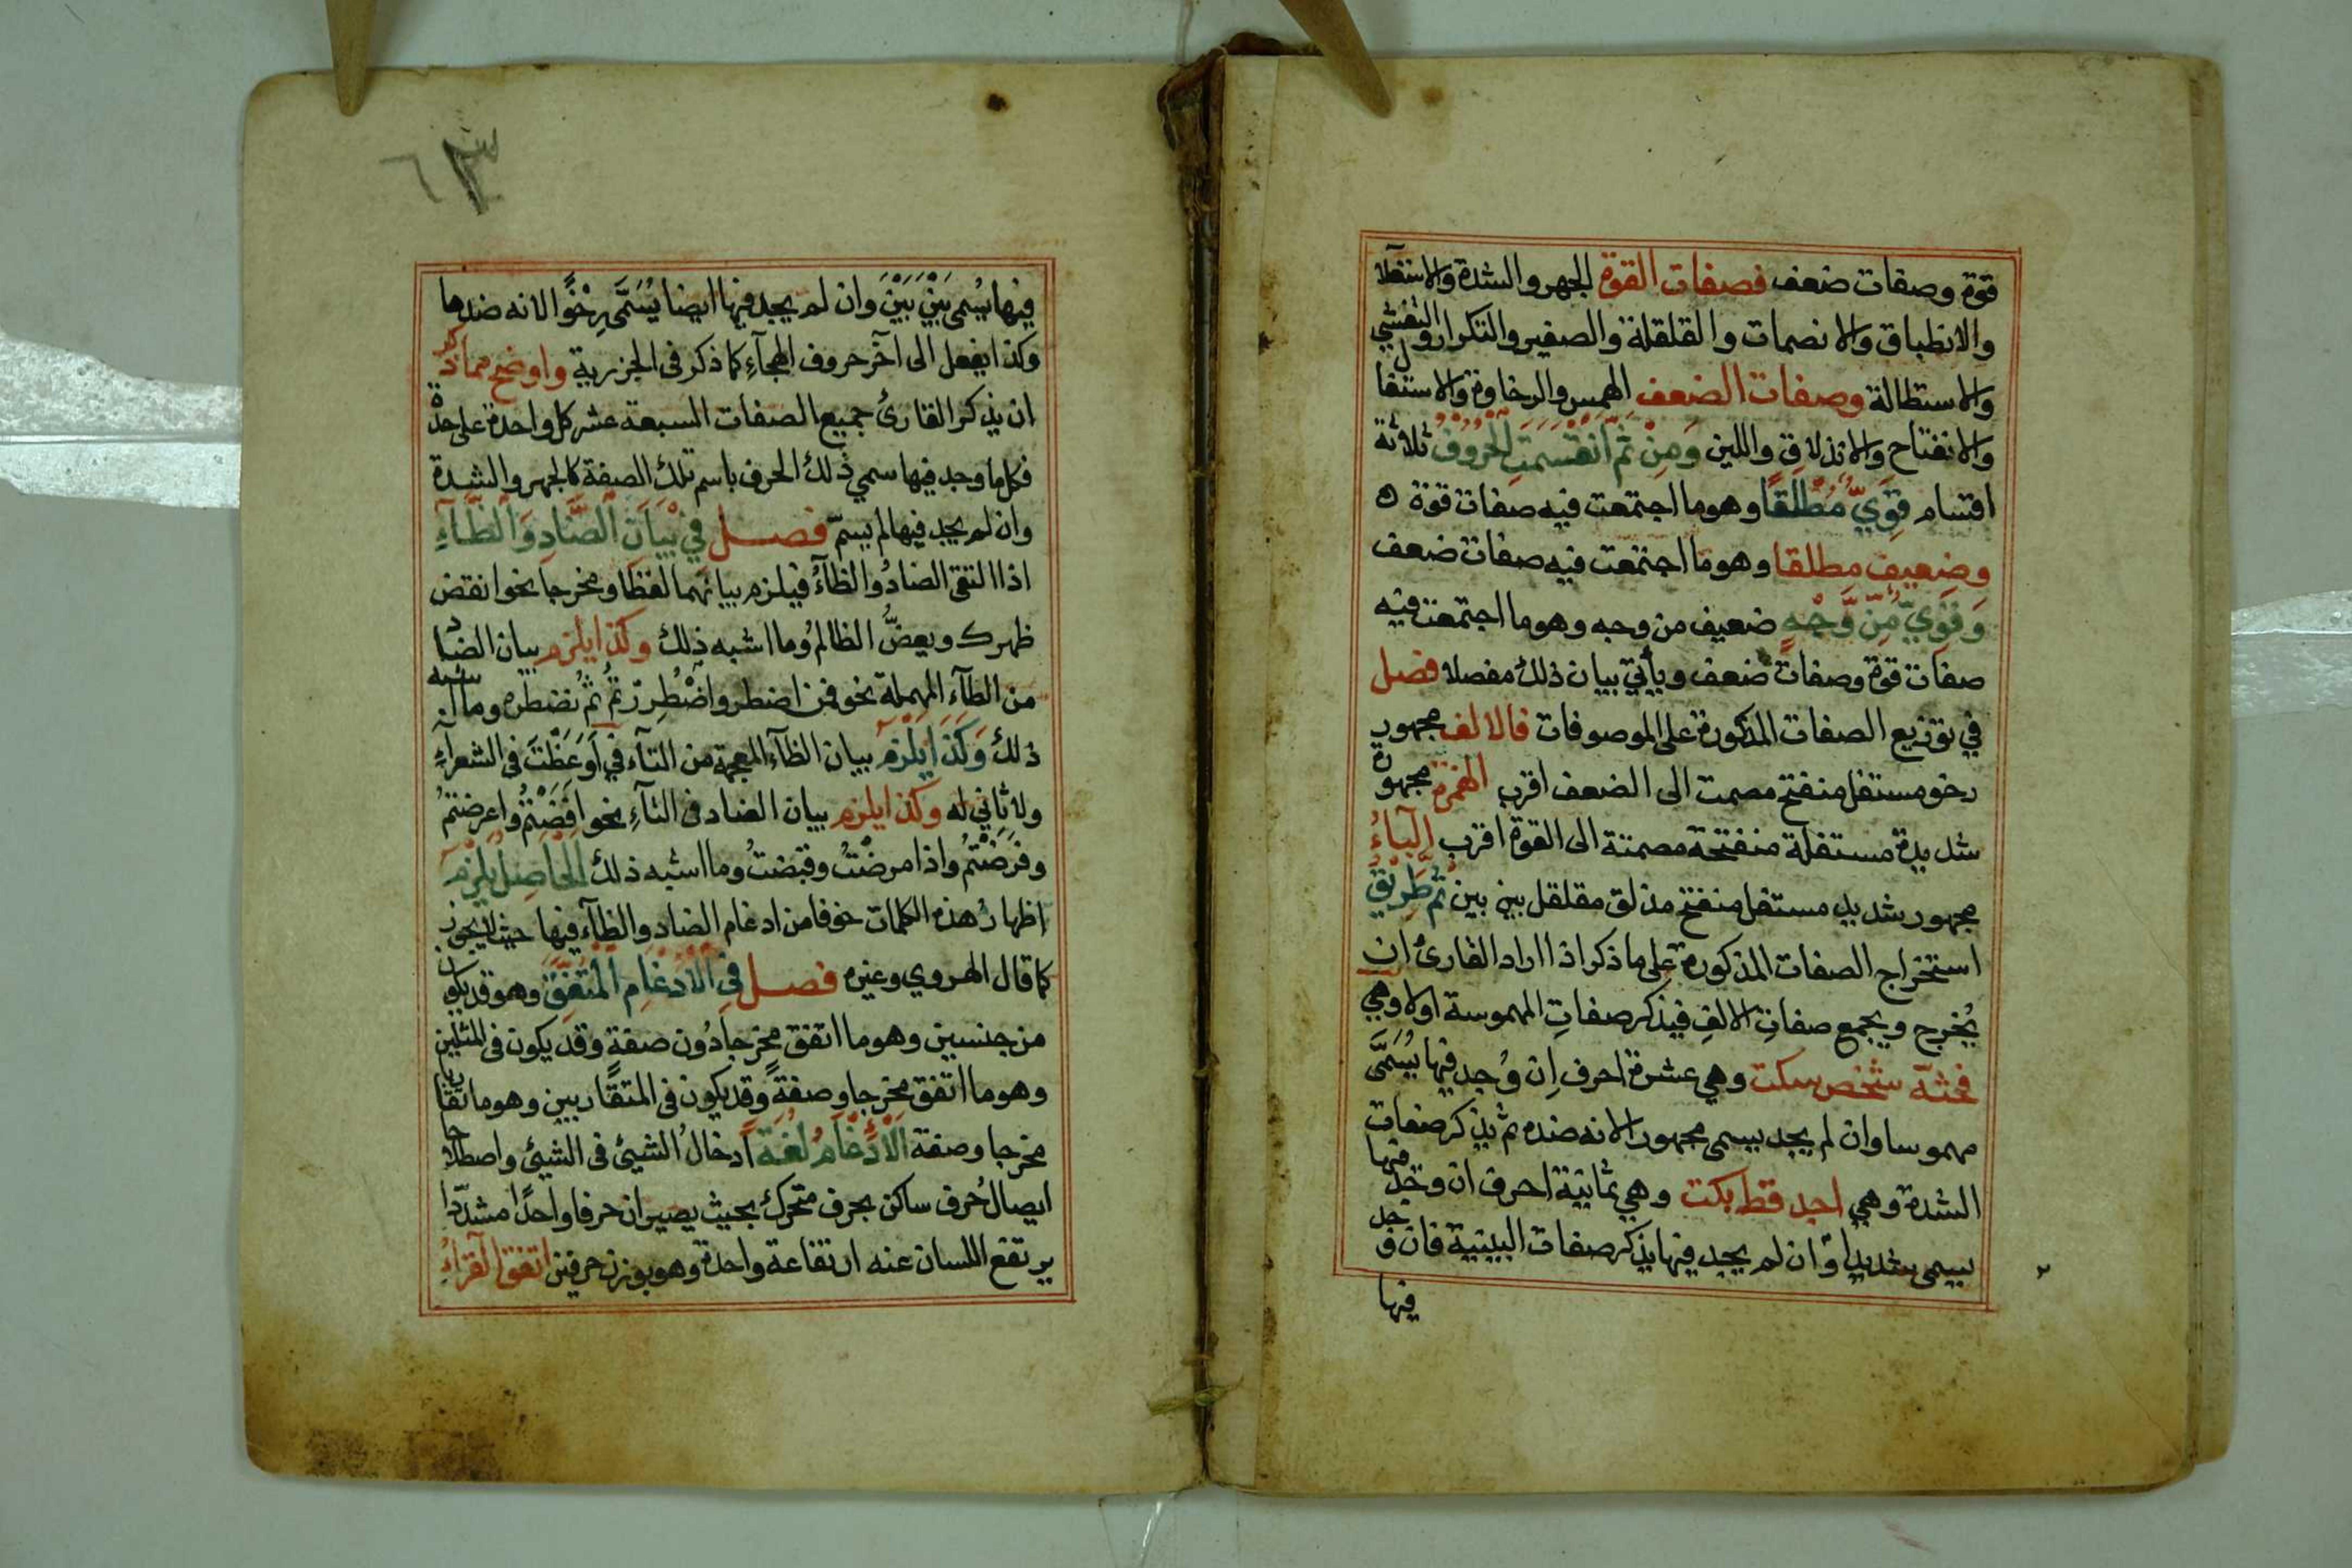 قوة وصفات ضعف فصفات القوة الجهر والشدة والاستعلا
والانطباق والانصمات والقلقلة والصفير والتكرار والتفشي
والاستطالة وصفات الضعف الهمس والرخاوة والاستفال
والانفتاح والانذلاق واللين وَمِنْ ثَمَّ اَنْقَسَمَتِ اَلْحُرُوْفُ ثلاثة
اقسام قَوِيٌّ مُطْلَقًا وهو ما اجتمعت فيه صفات قوة
وضعيف مطلقا وهو ما اجتمعت فيه صفات ضعف
وَقَوِيٌّ مِّنْ وَّجْهٍ ضعيف من وجه وهو ما اجتمعت فيه
صفات قوة وصفات ضعف ويأتي بيان ذلك مفصلا فصل
في توزيع الصفات المذكورة على الموصوفات فالالف مجهور
رخو مستفل منفتح مصمت الى الضعف اقرب الهمزة مجهورة
شديدة مستفلة منفتحة مصمتة الى القوة اقرب اَلْبَاءُ
مجهور شديد مستفل منفتح مذلق مقلقل بين بين ثُمَّ طَرِيْقُ
استخراج الصفات المذكورة على ما ذكر اذا اراد القارئ ان
يُخرج ويجمع صفاتِ الالفِ فيذكر صفاتِ المهموسة اولا وهي
فحثه شخص سكت وهي عشرة احرف اِن وُجد فيها يُسَمَّى
مهموسا وان لم يجد يسمى مجهورا لانه ضده ثم يذكر صفات
الشدة وهي اجد قط بكت وهي ثمانية احرف ان وجد فيها
يسمى شديدا وان لم يجد فيها يذكر صفات البينية فان وجد
فيها
٦٣
فيها يُسمى بَيْنَ بَيْنَ وان لم يجد فيها ايضا يُسَمَّى رِخْوًا لانه ضدها
وكذا يفعل الى آخر حروف الهجآءِ كما ذكر فى الجزرية واوضح مما ذكر
ان يذكر القارئ جميع الصفات السبعة عشر كل واحدة على حدة
فكل ما وجد فيها سمي ذلك الحرف باسم تلك الصفة كالجهر والشدة
وان لم يجد فيها لم يسمّ فصل فِيْ بَيَانِ اَلضَّادِ وَالظَّآءِ
اذا التقى الضادُ والظآءُ فيلزم بيانهما لفظا ومخرجا نحو انقض
ظهرك ويعضُّ الظالمُ وما اشبه ذلك وكذا يلزم بيان الضاد
من الطآء المهملة نحو فمن اضطر واضْطُرِرْتُمْ ثُم نضطره وما اشبه
ذلك وَكَذَا يَلْزَمُ بيان الظآءِ المعجمة من التآء فِي اَوَعَظْتَ فى الشعرآءِ
ولا ثاني له وكذا يلزم بيان الضاد فى التآءِ نحو افَضْتُمْ واعرضتمْ
وفَرَضْتُمْ واذا مرضْتُ وقبضتُ وما اشبه ذلك اَلْحَاصِلُ يَلْزَمُ
اظهارُ هذه الكلمات خوفا من ادغام الضاد والظآء فيها حيث لا يجوز
كما قال الهروي وغيره فصل فِي الْاِدْغَامِ اَلْمُتَّفَقِ وهو قد يكون
من جنسين وهو ما اتفق مخرجا دُون صفةٍ وقد يكون فى المثلين
وهو ما اتفق مخرجا وصفةً وقد يكون فى المتقاربين وهو ما تقاربا
مخرجا وصفة اَلْاِدْغَامُ لُغَةً اِدخالُ الشيئ فى الشيئ واصطلاحا
ايصالُ حرف ساكن بحرف متحرك بحيث يصيران حرفا واحدًا مشدّدا
يرتفع اللسان عنه ارتفاعة واحدة وهو بوزن حرفين اتفق القراءُ